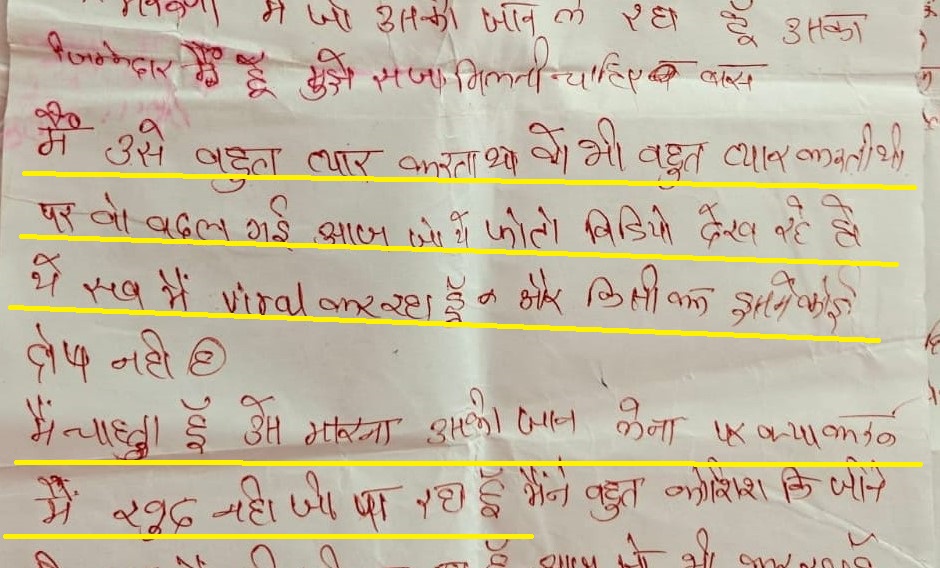 में जो उसकी जान ले रहा हूँ उसका
जिम्मेदार मैं हूँ मुझे सजा मिलनी चाहिए बास
मैं उसे बहुत प्यार करता था वो भी बहुत प्यार करती थी
पर वो बदल गई आज जो ये फोटो विडियो देख रहे हो
ये सब मैं viral कर रहा हूँ और किसी का इसमें कोई
दोष नही है
मैं चाहता हूँ उसे मारना उसकी जान लेना पर क्या करू
मैं खुद नही जी पा रहा हूँ मैंने बहुत कोशिश कि जीने
आज जो भी